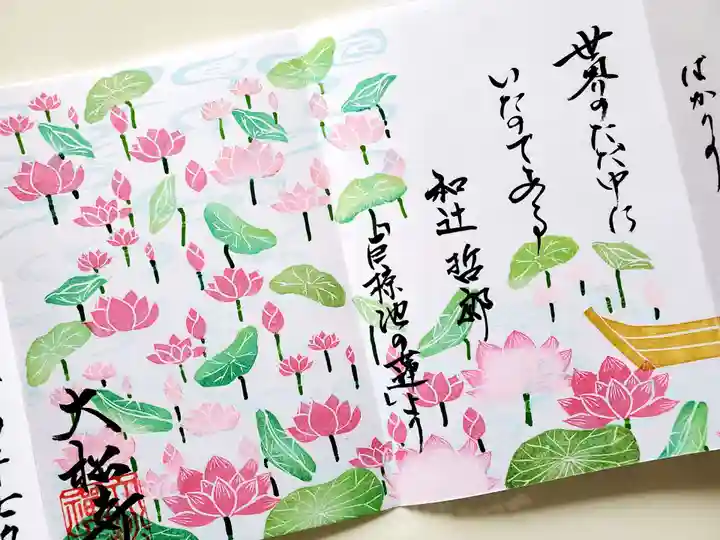 ばかりの
世界のただ中に
いたのである
和辻 哲郎
「巨椋池の蓮」より
大松寺